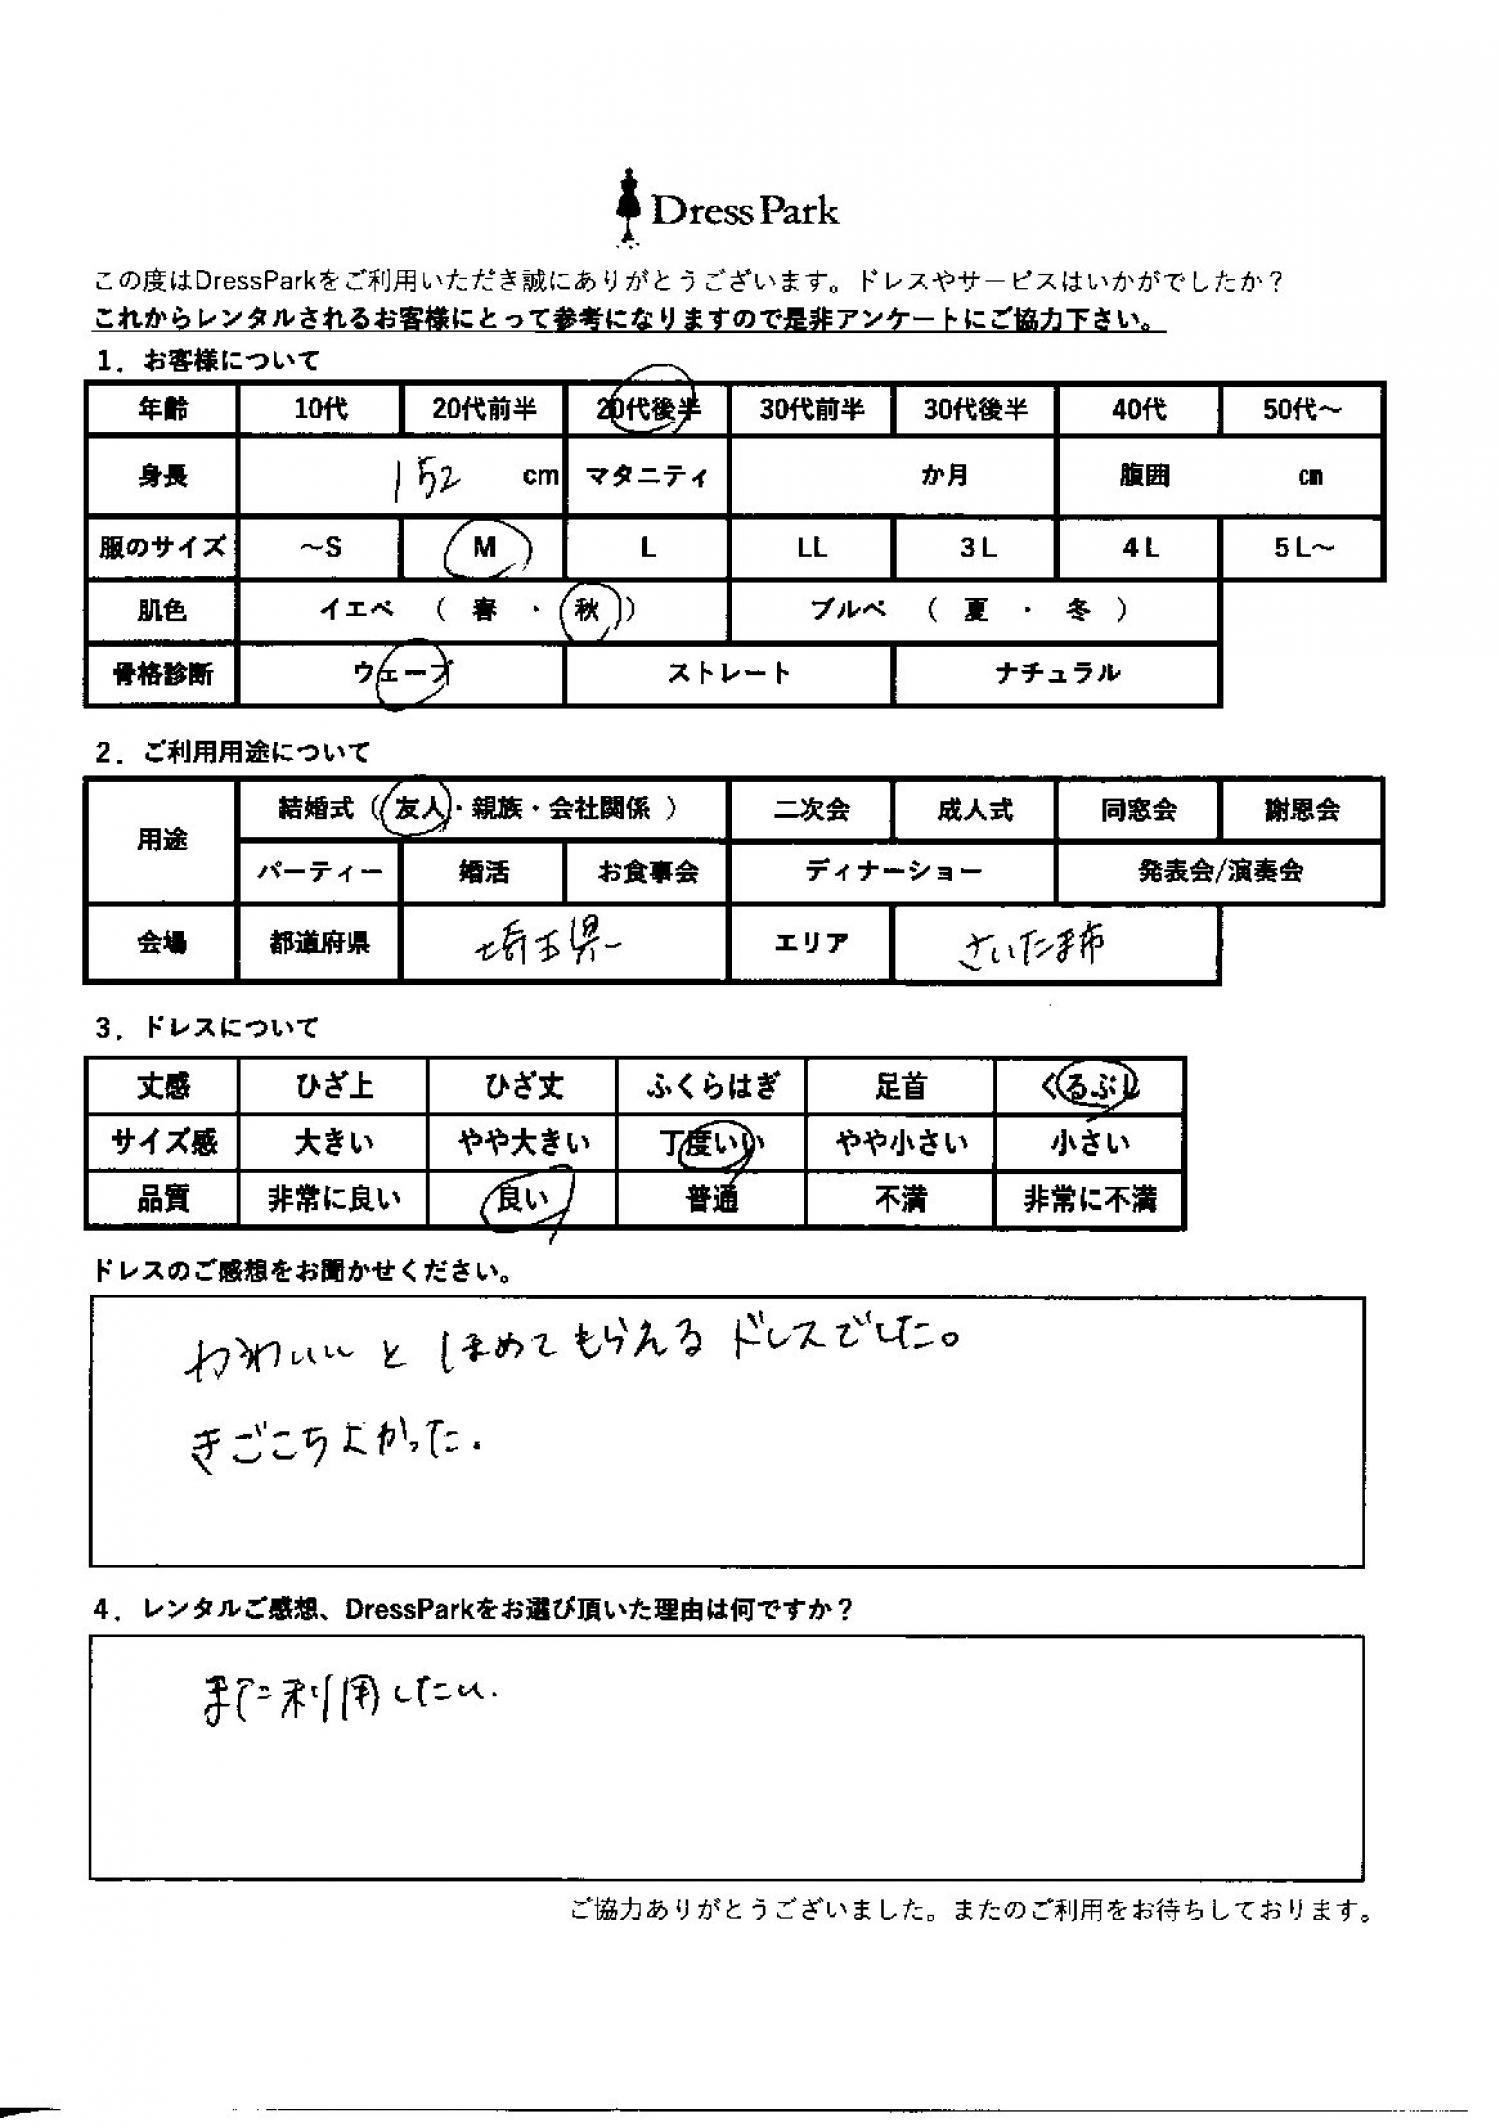 Dress Park
この度はDressParkをご利用いただき誠にありがとうございます。ドレスやサービスはいかがでしたか？
これからレンタルされるお客様にとって参考になりますので是非アンケートにご協力下さい。
1．お客様について
年齢 10代 20代前半 20代後半 30代前半 30代後半 40代 50代～
身長 152 cm マタニティ か月 腹囲 cm
服のサイズ ～S M L LL 3L 4L 5L～
肌色 イエベ （ 春 ・ 秋 ） ブルベ （ 夏 ・ 冬 ）
骨格診断 ウェーブ ストレート ナチュラル
2．ご利用用途について
用途 結婚式（ 友人・親族・会社関係 ） 二次会 成人式 同窓会 謝恩会
パーティー 婚活 お食事会 ディナーショー 発表会/演奏会
会場 都道府県 埼玉県 エリア さいたま市
3．ドレスについて
丈感 ひざ上 ひざ丈 ふくらはぎ 足首 くるぶし
サイズ感 大きい やや大きい 丁度いい やや小さい 小さい
品質 非常に良い 良い 普通 不満 非常に不満
ドレスのご感想をお聞かせください。
かわいいと ほめてもらえる ドレスでした。
きごこちよかった.
4．レンタルご感想、DressParkをお選び頂いた理由は何ですか？
また利用したい.
ご協力ありがとうございました。またのご利用をお待ちしております。